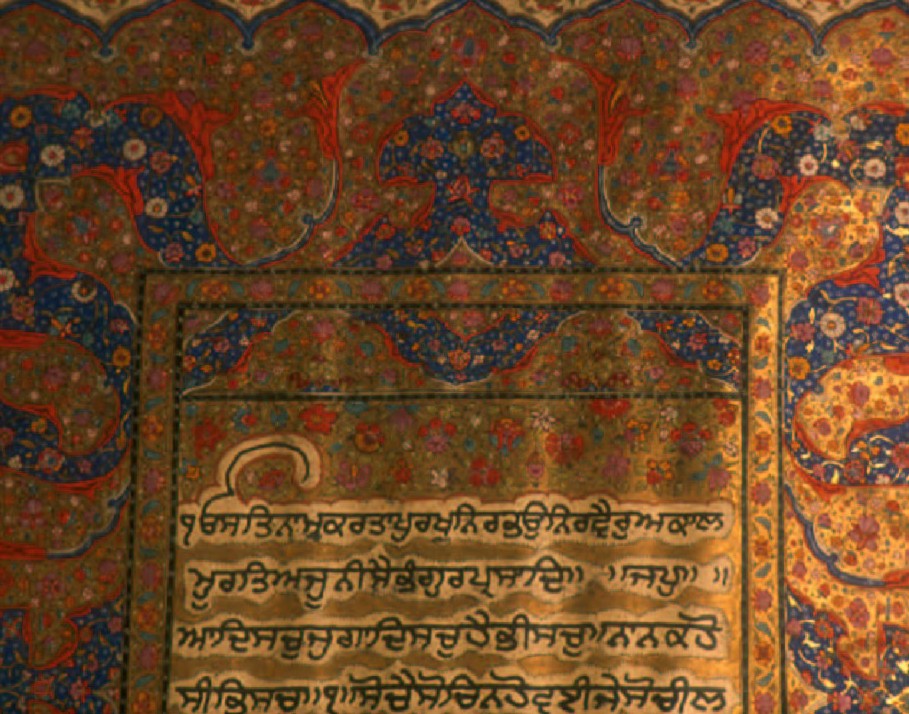 ੴਸਤਿਨਾਮੁਕਰਤਾਪੁਰਖੁਨਿਰਭਉਨਿਰਵੈਰੁਅਕਾਲ
ਮੂਰਤਿਅਜੂਨੀਸੈਭੰਗੁਰਪ੍ਰਸਾਦਿ॥ ॥ਜਪੁ॥ ॥
ਆਦਿਸਚੁਜੁਗਾਦਿਸਚੁਹੈਭੀਸਚੁਨਾਨਕਹੋ
ਸੀਭਿਸਚਾ॥੧॥ਸੋਚੈਸੋਚਿਨਹੋਵਈਜੇਸੋਚੀਲ